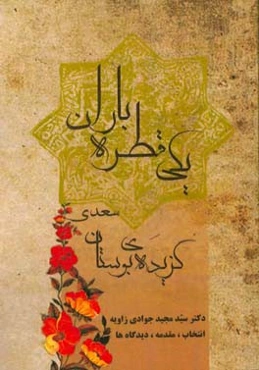 یکی قطره باران
سعدی
گزیده‌ی بوستان
دکتر سیّد مجید جوادی زاویه
انتخاب ، مقدمه ، دیدگاه ها